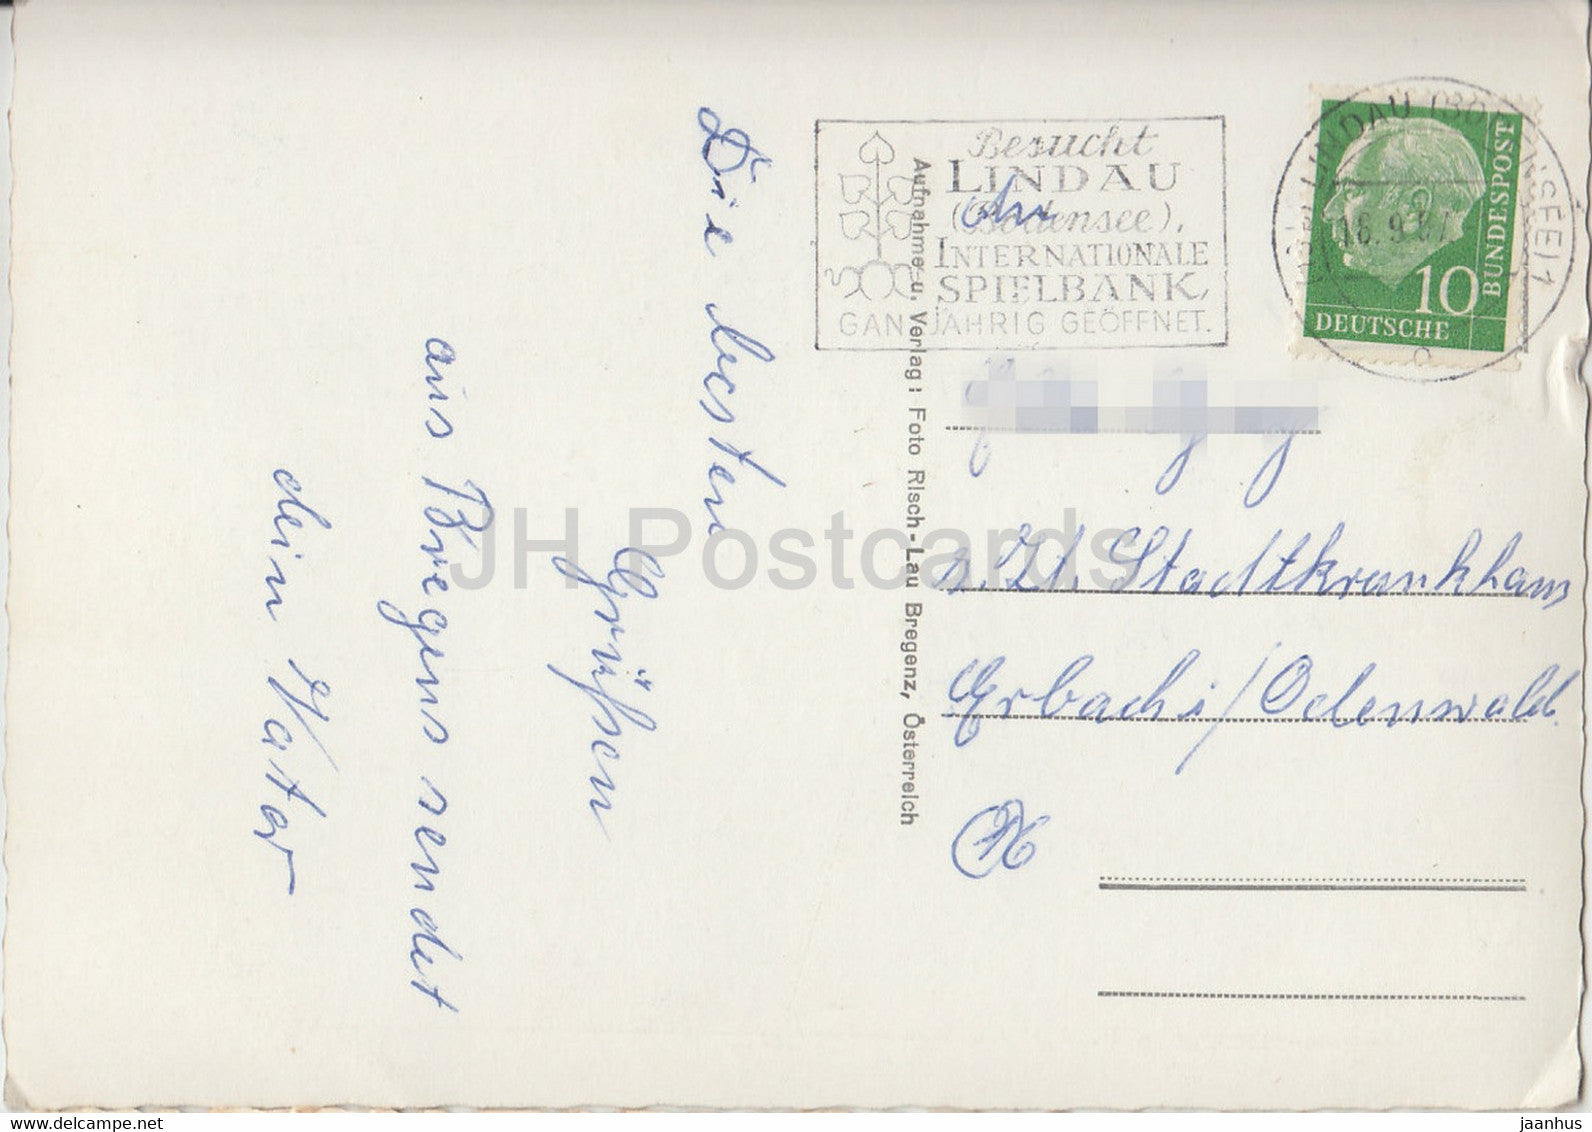 Die besten
Grüßen
aus Bregens sendet
dein Vater
Aufnahme u. Verlag: Foto Risch-Lau Bregenz, Österreich
Besucht
LINDAU
(Bodensee),
INTERNATIONALE
SPIELBANK,
GANZJÄHRIG GEÖFFNET.
LINDAU (BODENSEE) 1
16.9.
10
DEUTSCHE
BUNDESPOST
An
z. Zt. Stadtkrankhaus
Erbach i/Odenwald.
JH Postcards
www.delcampe.net
jaanhus